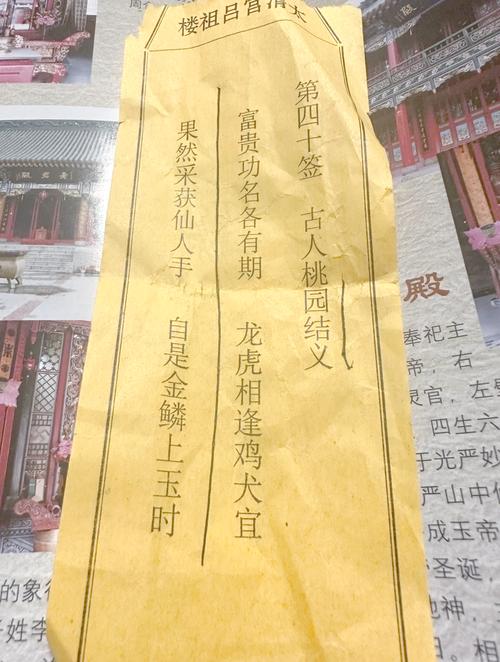 太清宫吕祖楼
第四十签 古人桃园结义
富贵功名各有期 龙虎相逢鸡犬宜
果然采获仙人手 自是金鳞上玉时
殿
奉祀主
帝，右
灵官，左
四生六
于光严妙
严山中
成玉帝
圣诞
神，
日。相
的象
姓李